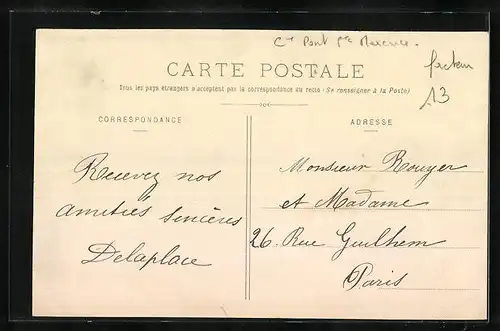 Cⁿ Pont Ste Maxence.
facteur
13
CARTE POSTALE
Tous les pays étrangers n'acceptent pas la correspondance au recto (Se renseigner à la Poste)
CORRESPONDANCE
ADRESSE
Recevez nos
amitiés sincères
Delaplace
Monsieur Rouyer
et Madame
26 Rue Guilhem
Paris